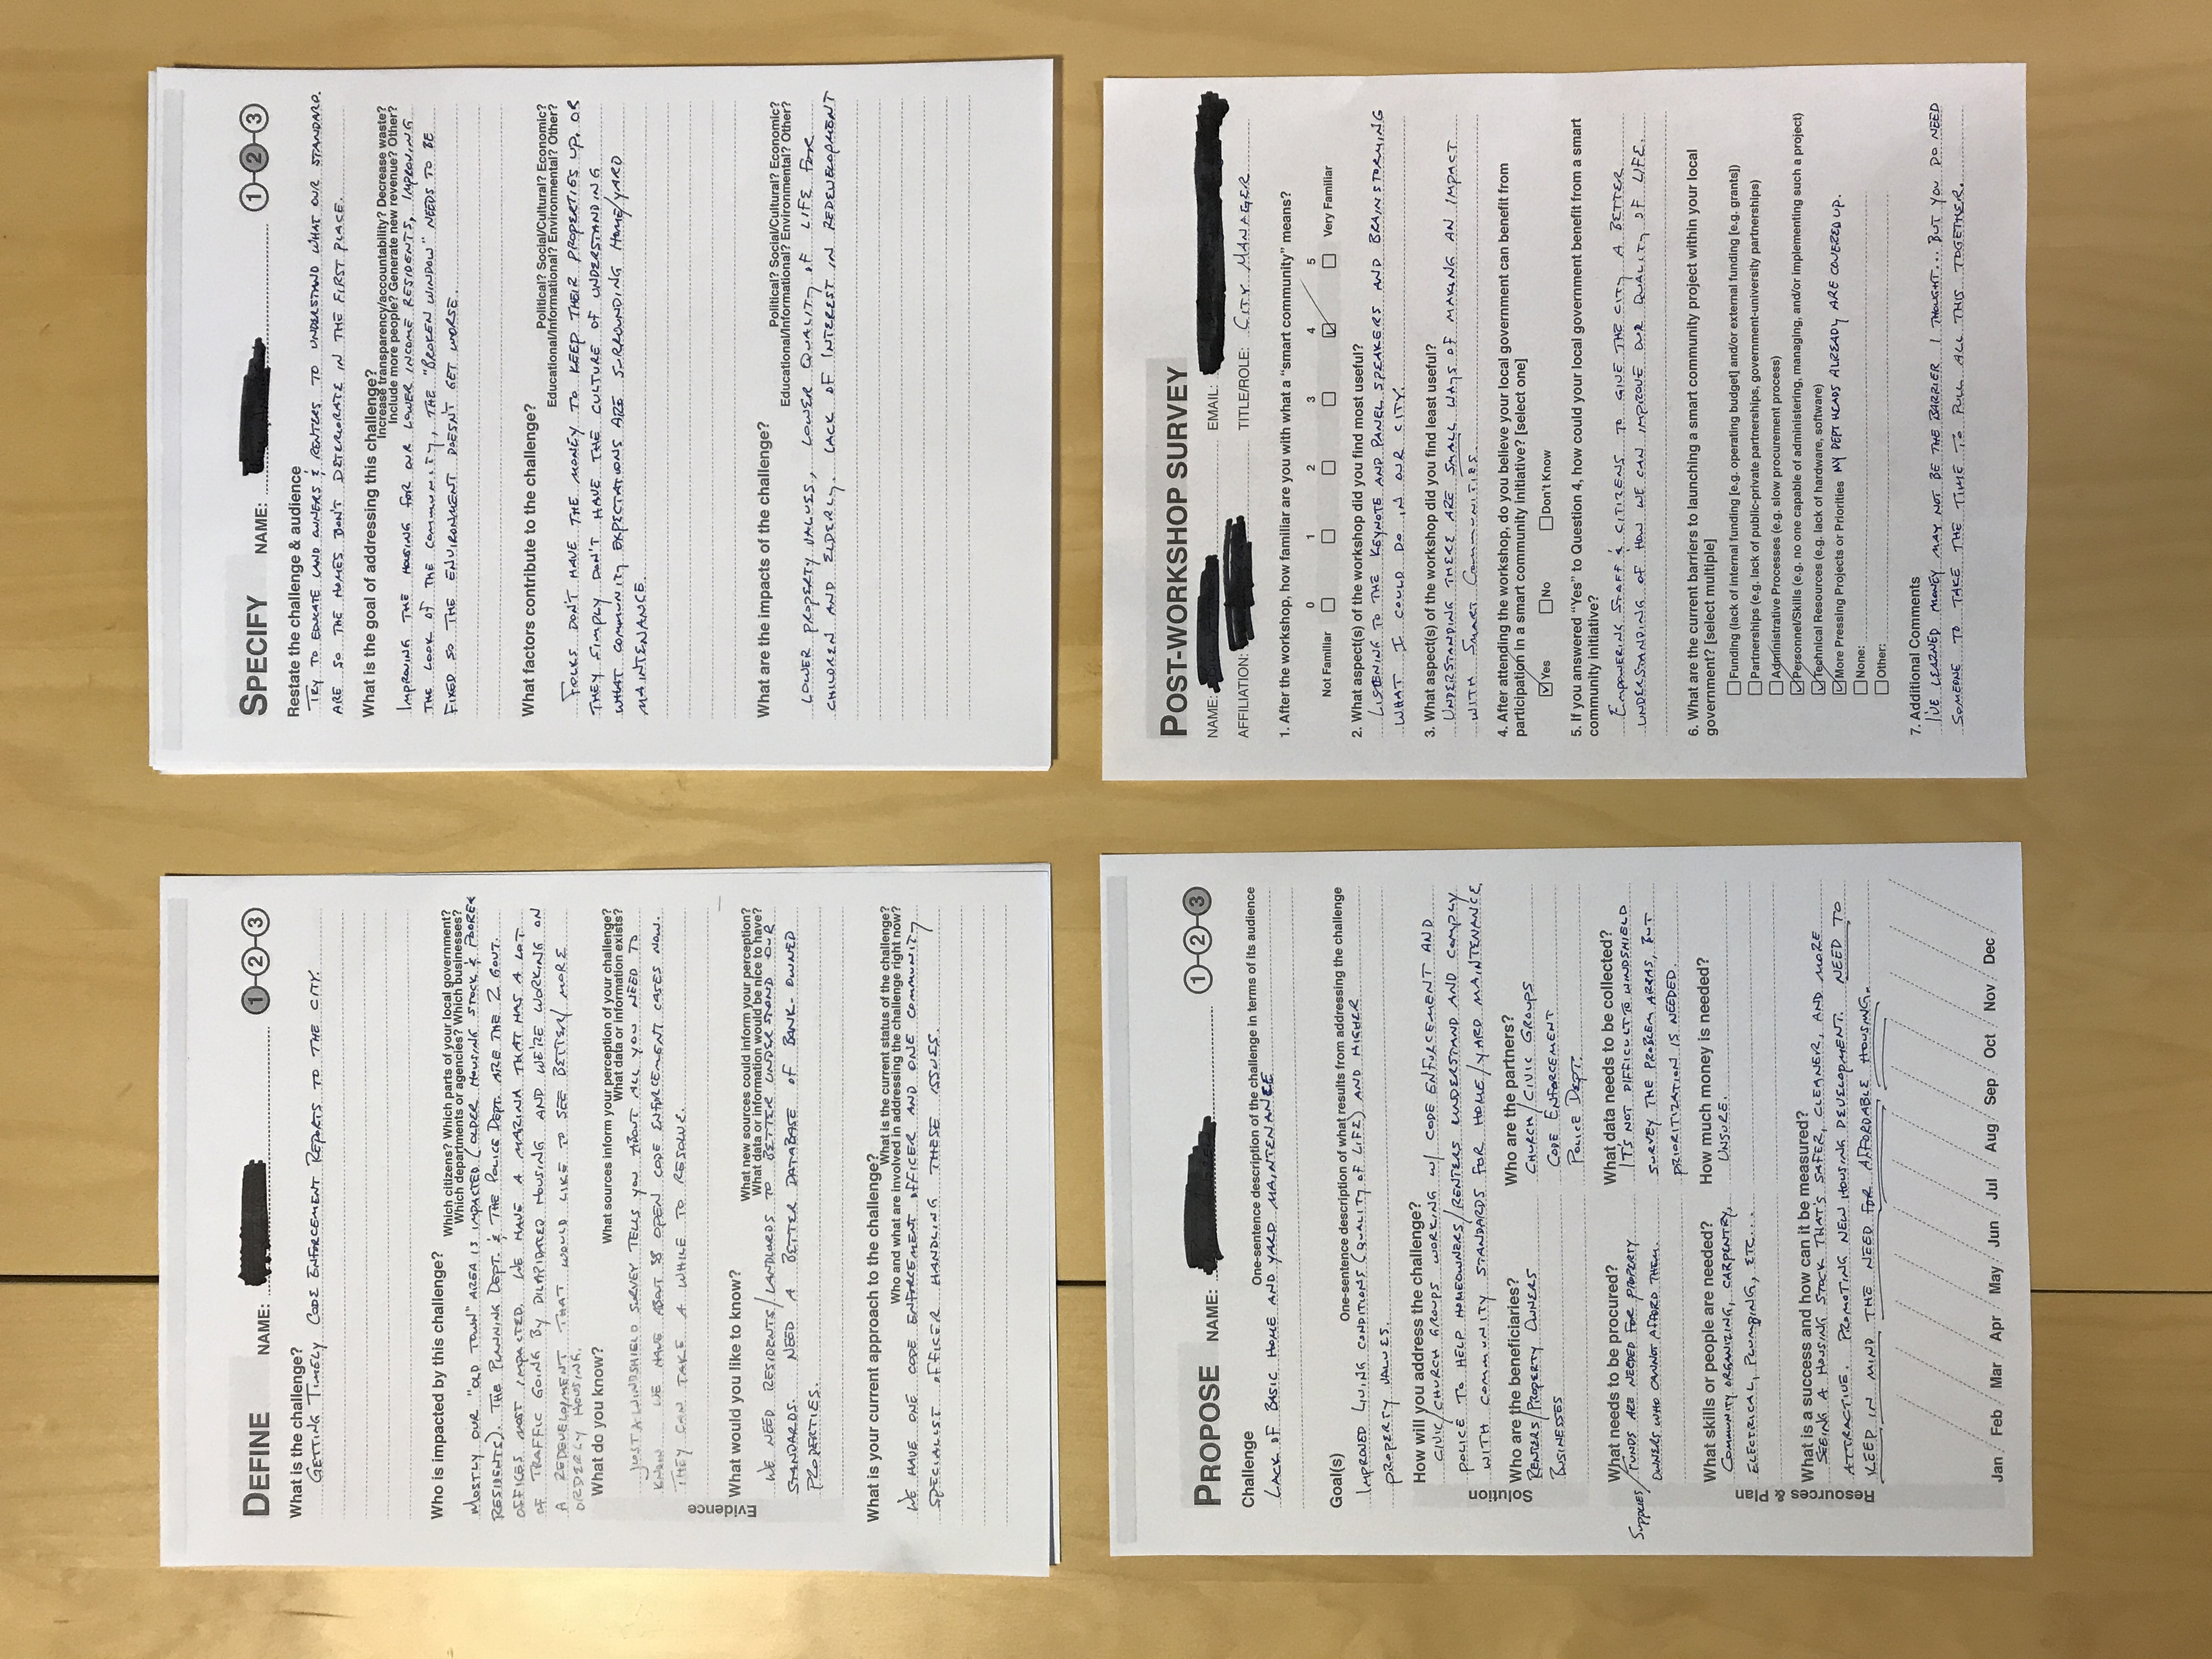 DEFINE NAME: 1 2 3
What is the challenge?
GETTING TIMELY CODE ENFORCEMENT REPORTS TO THE CITY.
Who is impacted by this challenge?
Which citizens? Which parts of your local government?
Which departments or agencies? Which businesses?
MOSTLY OUR "OLD TOWN" AREA IS IMPACTED (OLDER HOUSING STOCK & POORER
RESIDENTS). THE PLANNING DEPT. & THE POLICE DEPT. ARE THE 2 GOVT.
OFFICES MOST IMPACTED. WE HAVE A MARINA THAT HAS A LOT
OF TRAFFIC GOING BY DILAPIDATED HOUSING AND WE'RE WORKING ON
A REDEVELOPMENT THAT WOULD LIKE TO SEE BETTER/MORE
ORDERLY HOUSING.
Evidence
What do you know?
What sources inform your perception of your challenge?
What data or information exists?
JUST A WINDSHIELD SURVEY TELLS YOU ABOUT ALL YOU NEED TO
KNOW WE HAVE ABOUT 38 OPEN CODE ENFORCEMENT CASES NOW.
THEY CAN TAKE A WHILE TO RESOLVE.
What would you like to know?
What new sources could inform your perception?
What data or information would be nice to have?
WE NEED RESIDENTS/LANDLORDS TO BETTER UNDERSTAND OUR
STANDARDS. NEED A BETTER DATABASE OF BANK-OWNED
PROPERTIES.
What is your current approach to the challenge?
What is the current status of the challenge?
Who and what are involved in addressing the challenge right now?
WE HAVE ONE CODE ENFORCEMENT OFFICER AND ONE COMMUNITY
SPECIALIST OFFICER HANDLING THESE ISSUES.
SPECIFY NAME: 1 2 3
Restate the challenge & audience
TRY TO EDUCATE LAND OWNERS & RENTERS TO UNDERSTAND WHAT OUR STANDARD.
ARE SO THE HOMES DON'T DETERIORATE IN THE FIRST PLACE.
What is the goal of addressing this challenge?
Increase transparency/accountability? Decrease waste?
Include more people? Generate new revenue? Other?
IMPROVING THE HOUSING FOR OUR LOWER INCOME RESIDENTS, IMPROVING
THE LOOK OF THE COMMUNITY, THE "BROKEN WINDOW" NEEDS TO BE
FIXED SO THE ENVIRONMENT DOESN'T GET WORSE.
What factors contribute to the challenge?
Political? Social/Cultural? Economic?
Educational/Informational? Environmental? Other?
FOLKS DON'T HAVE THE MONEY TO KEEP THEIR PROPERTIES UP, OR
THEY SIMPLY DON'T HAVE THE CULTURE OF UNDERSTANDING
WHAT COMMUNITY EXPECTATIONS ARE SURROUNDING HOME/YARD
MAINTENANCE.
What are the impacts of the challenge?
Political? Social/Cultural? Economic?
Educational/Informational? Environmental? Other?
LOWER PROPERTY VALUES, LOWER QUALITY OF LIFE FOR
CHILDREN AND ELDERLY. LACK OF INTEREST IN REDEVELOPMENT
PROPOSE NAME: 1 2 3
Challenge
One-sentence description of the challenge in terms of its audience
LACK OF BASIC HOME AND YARD MAINTENANCE
Goal(s)
One-sentence description of what results from addressing the challenge
IMPROVED LIVING CONDITIONS (QUALITY OF LIFE) AND HIGHER
PROPERTY VALUES.
Solution
How will you address the challenge?
CIVIC/CHURCH GROUPS WORKING W/ CODE ENFORCEMENT AND
POLICE TO HELP HOMEOWNERS/RENTERS UNDERSTAND AND COMPLY
WITH COMMUNITY STANDARDS FOR HOME/YARD MAINTENANCE
Who are the beneficiaries?
RENTERS/PROPERTY OWNERS
BUSINESSES
Who are the partners?
CHURCH/CIVIC GROUPS
CODE ENFORCEMENT
POLICE DEPT.
Resources & Plan
What needs to be procured?
SUPPLIES/FUNDS ARE NEEDED FOR PROPERTY
OWNERS WHO CANNOT AFFORD THEM.
What data needs to be collected?
IT'S NOT DIFFICULT TO WINDSHIELD
SURVEY THE PROBLEM AREAS, BUT
PRIORITIZATION IS NEEDED.
What skills or people are needed?
COMMUNITY ORGANIZING, CARPENTRY,
ELECTRICAL, PLUMBING, ETC...
How much money is needed?
UNSURE.
What is a success and how can it be measured?
SEEING A HOUSING STOCK THAT'S SAFER, CLEANER, AND MORE
ATTRACTIVE. PROMOTING NEW HOUSING DEVELOPMENT. NEED TO
KEEP IN MIND THE NEED FOR AFFORDABLE HOUSING.
Jan Feb Mar Apr May Jun Jul Aug Sep Oct Nov Dec
POST-WORKSHOP SURVEY
NAME: EMAIL:
AFFILIATION: TITLE/ROLE: CITY MANAGER
1. After the workshop, how familiar are you with what a “smart community” means?
0 1 2 3 4 5
Not Familiar Very Familiar
2. What aspect(s) of the workshop did you find most useful?
LISTENING TO THE KEYNOTE AND PANEL SPEAKERS AND BRAINSTORMING
WHAT I COULD DO IN OUR CITY.
3. What aspect(s) of the workshop did you find least useful?
UNDERSTANDING THERE ARE SMALL WAYS OF MAKING AN IMPACT
WITH SMART COMMUNITIES.
4. After attending the workshop, do you believe your local government can benefit from
participation in a smart community initiative? [select one]
Yes No Don't Know
5. If you answered “Yes” to Question 4, how could your local government benefit from a smart
community initiative?
EMPOWERING STAFF & CITIZENS TO GIVE THE CITY A BETTER
UNDERSTANDING OF HOW WE CAN IMPROVE OUR QUALITY OF LIFE.
6. What are the current barriers to launching a smart community project within your local
government? [select multiple]
Funding (lack of internal funding [e.g. operating budget] and/or external funding [e.g. grants])
Partnerships (e.g. lack of public-private partnerships, government-university partnerships)
Administrative Processes (e.g. slow procurement process)
Personnel/Skills (e.g. no one capable of administering, managing, and/or implementing such a project)
Technical Resources (e.g. lack of hardware, software)
More Pressing Projects or Priorities MY DEPT HEADS ALREADY ARE COVERED UP.
None:
Other:
7. Additional Comments
I'VE LEARNED MONEY MAY NOT BE THE BARRIER I THOUGHT... BUT YOU DO NEED
SOMEONE TO TAKE THE TIME TO PULL ALL THIS TOGETHER.